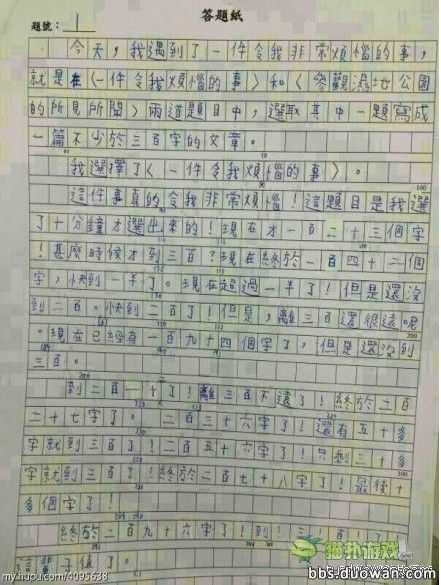 答題紙
題號：1
今天，我遇到了一件令我非常煩惱的事，
就是在〈一件令我煩惱的事〉和〈參觀濕地公園
的所見所聞〉兩道題目中，選取其中一題寫成
一篇不少於三百字的文章。
我選擇了〈一件令我煩惱的事〉。
這件事真的令我非常煩惱！這題目是我選
了十分鐘才選出來的！現在才一百二十三個字
！甚麼時候才到三百？現在終於一百四十二個
字，快到一半了。現在超過一半了！但是還沒
到二百。快到二百了！但是，離三百還很遠呢
。現在已經有一百九十四個字了，但是還沒到
三百。
到二百一十了！離三百不遠了！終於二百
二十七字了。二百三十六字了！還有五十多
字就到三百了！二百五十六字了！只剩三十多
字就到三百了！終於二百七十八字了！最後十
多個字了！
終於二百九十六字了！到！三！百！
字！覃！了！
猫扑游戏
my.hupu.com/4095638
bbs.duowan.com